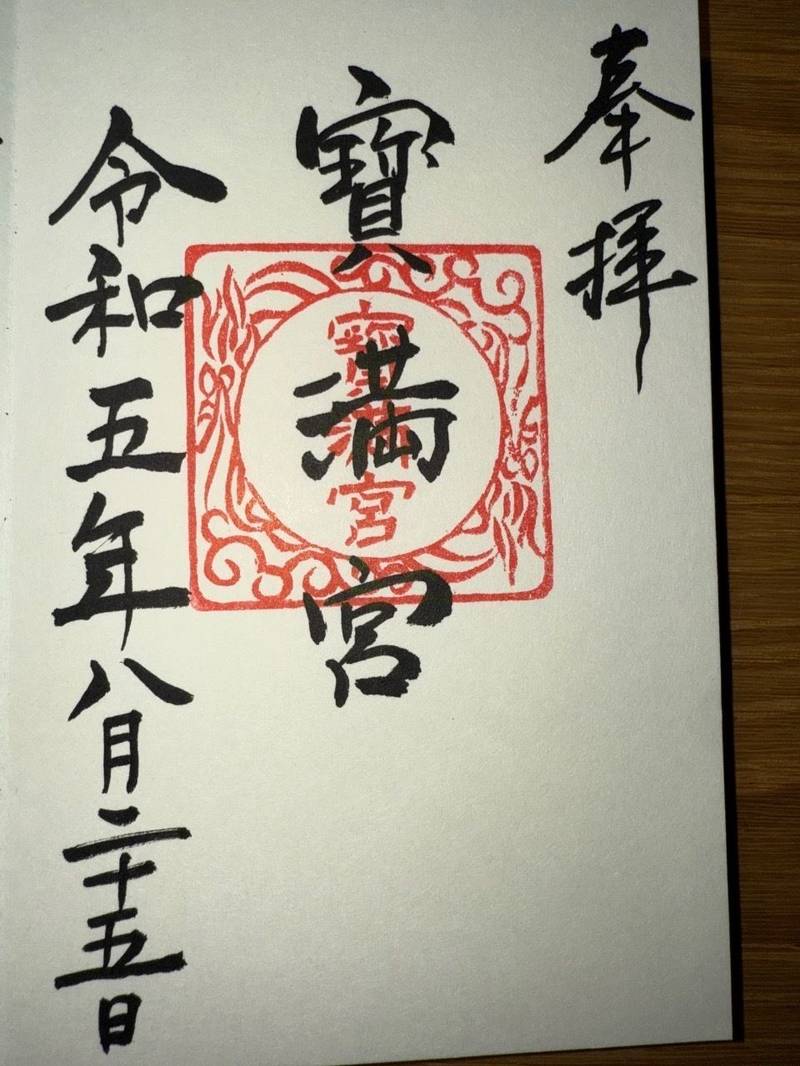 奉拝
寶満宮
寶満宮
令和五年八月二十五日